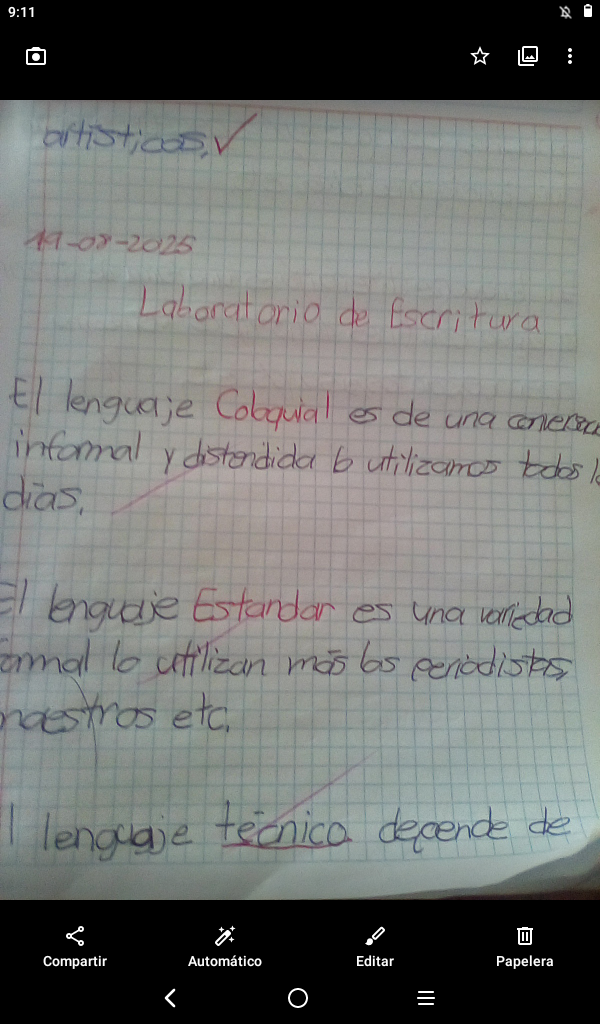 9:11
artisticas.
19-08-2025
Laboratorio de Escritura
El lenguaje Coloquial es de una
informal y distendida lo utilizamos todos
días.
El lenguaje Estandar es una variedad
lo utilizan más los periodistas,
maestros etc.
lenguaje técnico depende de
Compartir
Automático
Editar
Papelera